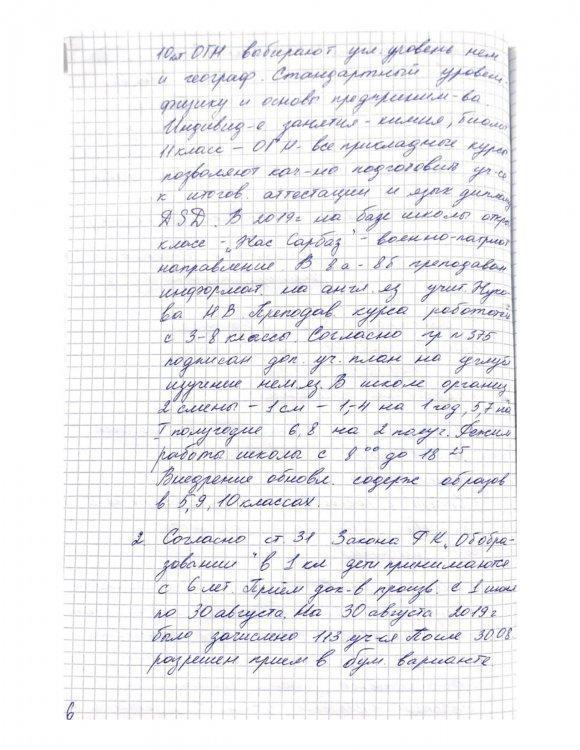 10 кл ОГН выбирают угл. уровень нем
и географ. Стандартный уровень
физику и основы предприним-ва.
Индивид-е занятия - химия, биоло
11 класс - ОГН - все прикладные курсы
позволяют кач-но подготовить уч-ся
к итогов. аттестации и язык. диплому
DSD. В 2019г на базе школы откры
класс - „Жас Сарбаз" - военно-патриот
направление. В 8а - 8б преподаван
информат. на англ. яз учит.
ва Н В. Преподав. курса робототех
с 3-8 классы. Согласно пр №375
подписан доп. уч. план на углуб
изучение нем. яз. В школе организ.
2 смены - 1 см - 1,-4 на 1 год, 5,7 на
I полугодие 6,8 на 2 полуг. Режим
работы школы с 8 00 до 18 25
Внедрение обновл. содерж образов
в 5,9,10 классах.
2 Согласно ст. 31 Закона РК „Об обра-
зовании" в 1 кл дети принимаются
с 6 лет. Приём док-в произв. с 1 июня
по 30 августа. На 30 августа 2019г
было зачислено 113 уч-ся После 30 08
разрешен прием в бум варианте.
6